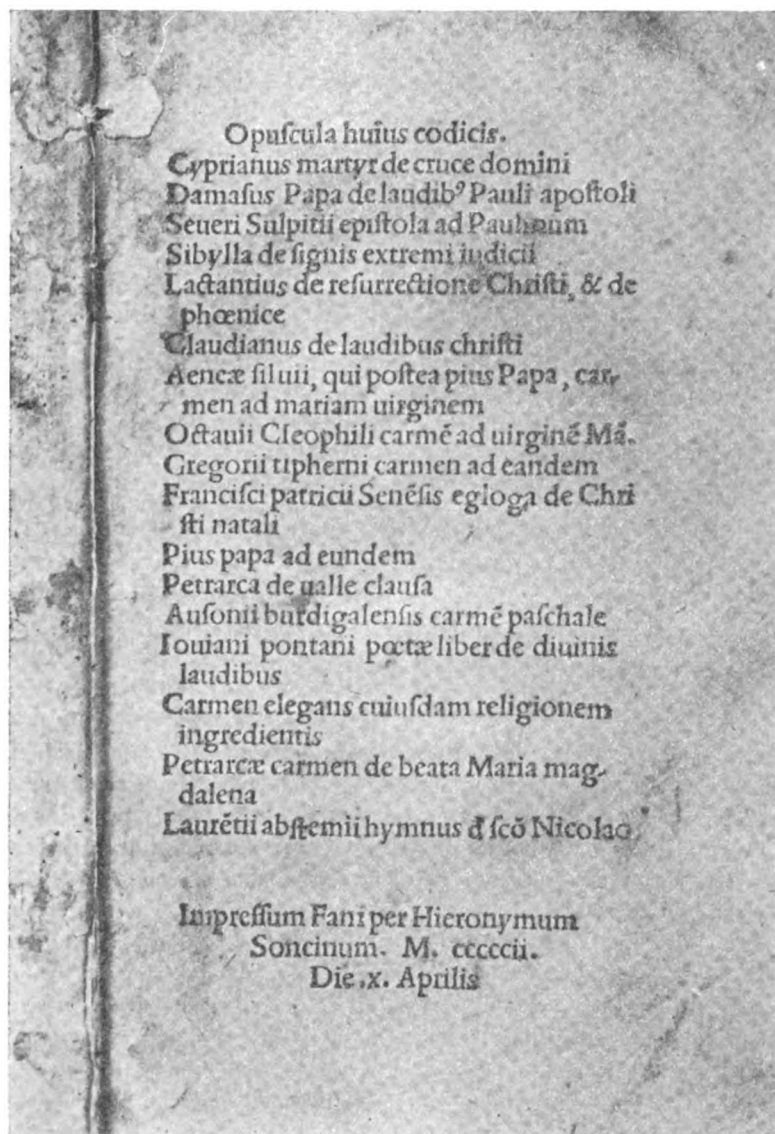 Opuſcula huius codicis.
Cyprianus martyr de cruce domini
Damaſus Papa de laudibꝰ Pauli apoſtoli
Seueri Sulpitii epiſtola ad Paulinum
Sibylla de ſignis extremi iudicii
Lactantius de reſurrectione Chriſti, & de
phœnice
Claudianus de laudibus chriſti
Aeneæ ſiluii, qui poſtea pius Papa, car-
men ad mariam uirginem
Octauii Cleophili carmē ad uirginē Mā.
Gregorii tipherni carmen ad eandem
Franciſci patricii Senēſis egloga de Chri
ſti natali
Pius papa ad eundem
Petrarca de ualle clauſa
Auſonii burdigalenſis carmē paſchale
Iouiani pontani poetæ liber de diuinis
laudibus
Carmen elegans cuiuſdam religionem
ingredientis
Petrarcæ carmen de beata Maria mag-
dalena
Laurētii abſtemii hymnus đ ſcō Nicolao
Impreſſum Fani per Hieronymum
Soncinum. M. cccccii.
Die .x. Aprilis